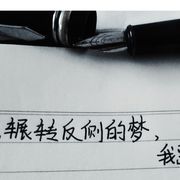 辗转反侧的梦,
我